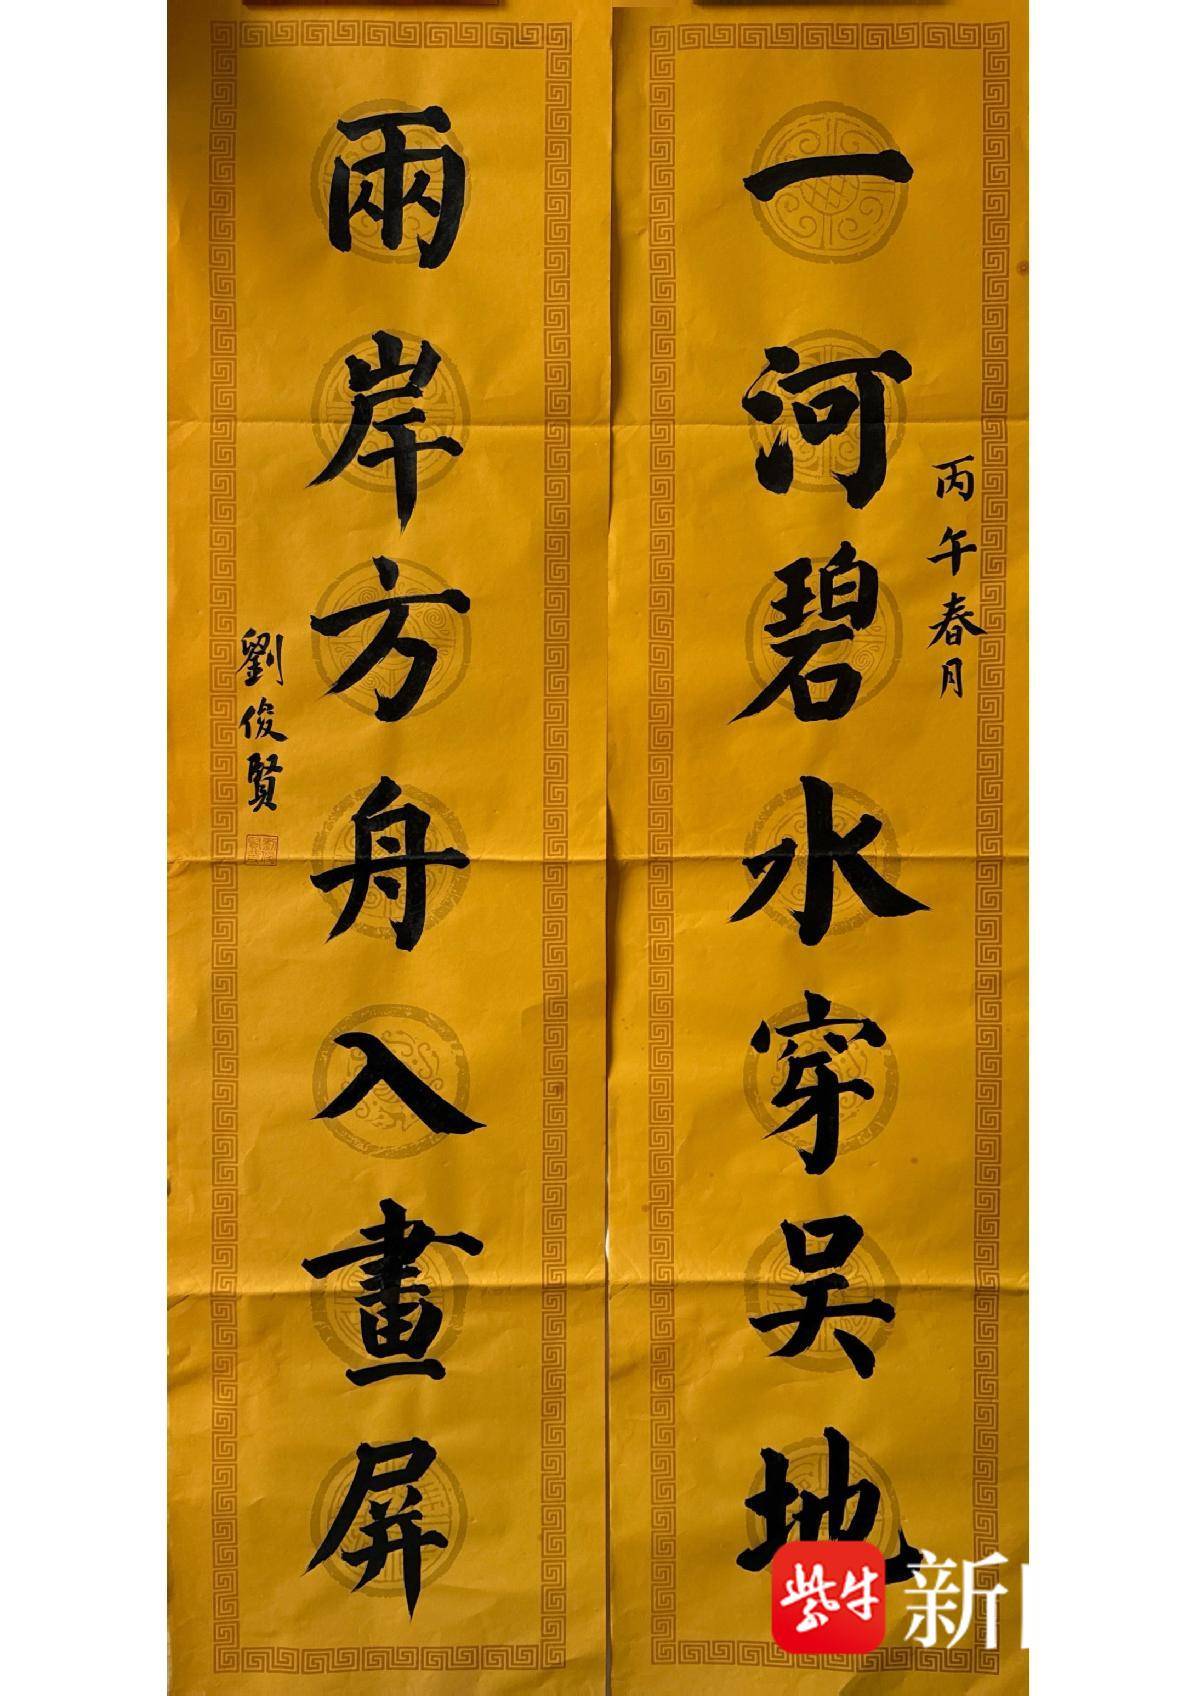 丙午春月
一河碧水穿吴地
兩岸方舟入畫屏
劉俊賢
紫牛
新